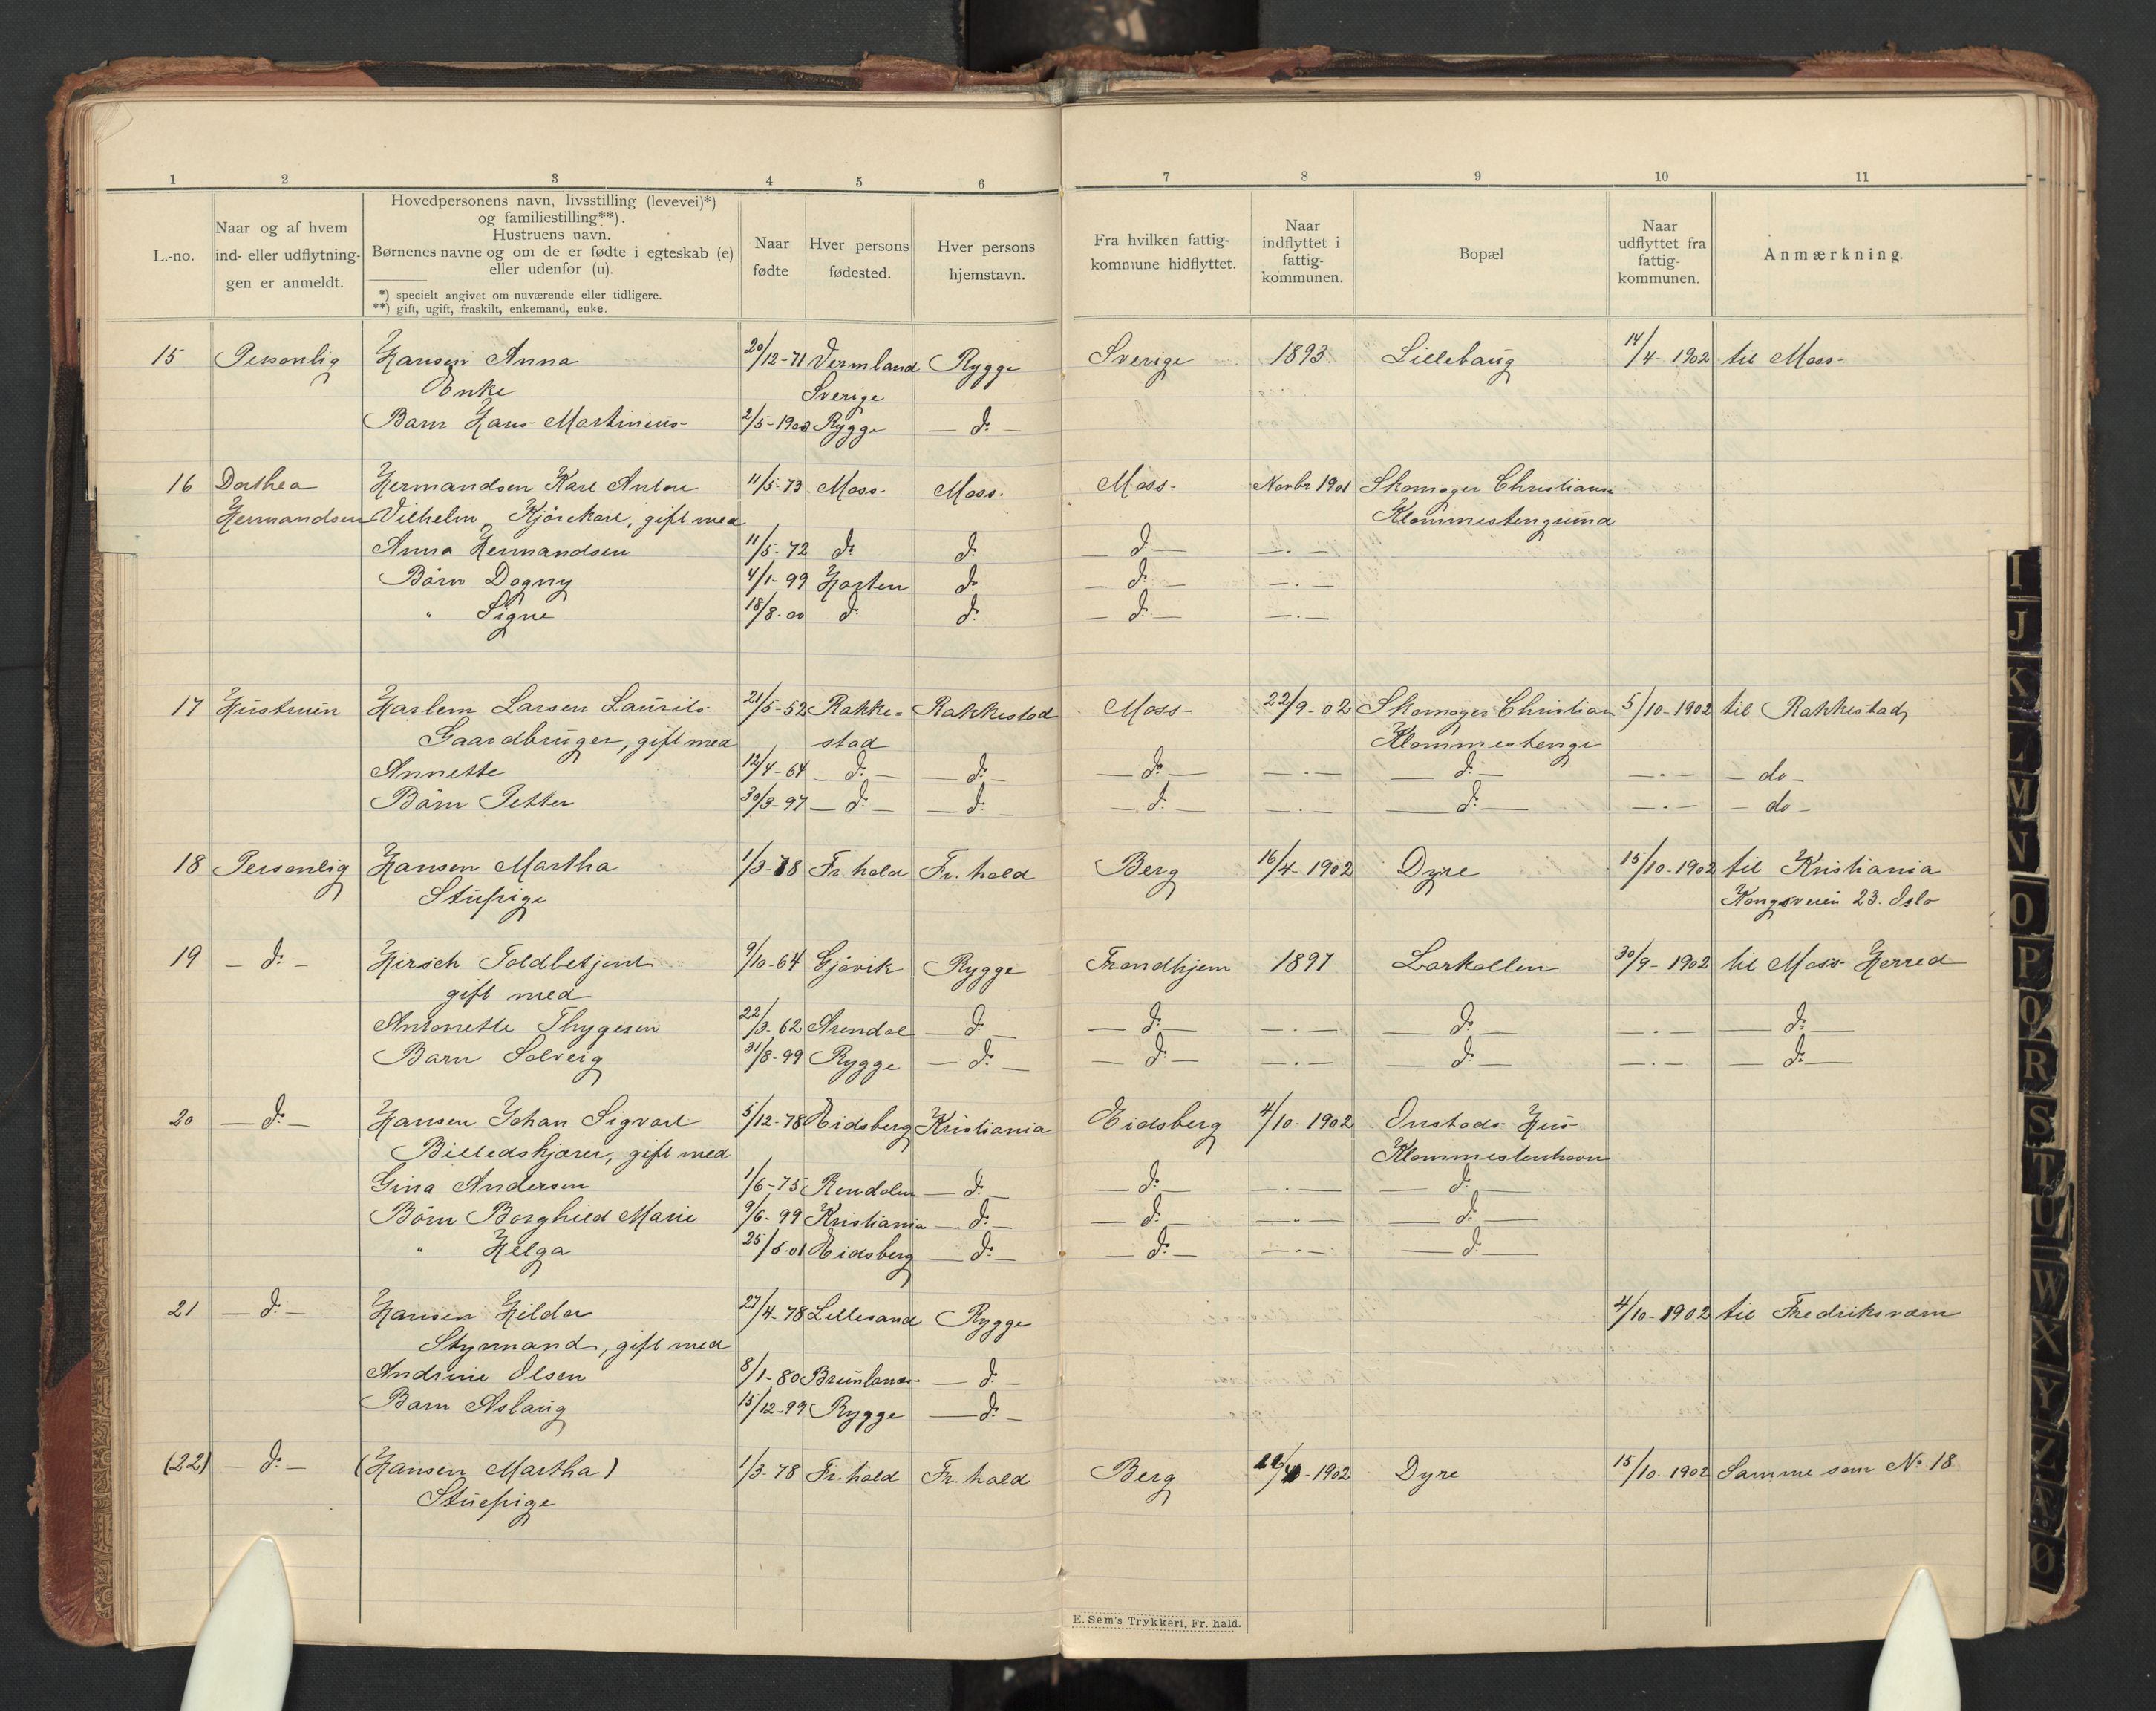 1 2 3 4 5 6 7 8 9 10 11
L.-no. | Naar og af hvem ind- eller udflytningen er anmeldt. | Hovedpersonens navn, livsstilling (levevei)*) og familiestilling**). Hustruens navn. Børnenes navne og om de er fødte i egteskab (e) eller udenfor (u). | Naar fødte | Hver persons fødested. | Hver persons hjemstavn. | Fra hvilken fattigkommune hidflyttet. | Naar indflyttet i fattigkommunen. | Bopæl | Naar udflyttet fra fattigkommunen. | Anmærkning.
*) specielt angivet om nuværende eller tidligere.
**) gift, ugift, fraskilt, enkemand, enke.
15 Personlig Hansen Anna 20/12-71 Vermland Rygge Sverige 1893 Lillehaug 14/4-1902 til Moss-
Enke Sverige
Barn Hans Martinius- 2/5-1900 Rygge — d: —
16 Dorthea Hermandsen Karl Anton 11/5-73 Moss- Moss. Moss- Novbr 1901 Skomager Christians
Hermandsen Vilhelm, Kjørekarl, gift med Klommestengrund
Anna Hermandsen 11/5-72 d: d: — d: — — . —
Børn Dagny 4/1-99 Horten d: — d: — — . —
" Signe 18/8-00 d: d: — d: — — . —
17 Hustruen Harlem Larsen Laurits 21/5-52 Rakke= Rakkestad Moss- 22/9-02 Skomager Christian 5/10-1902 til Rakkestad
Gaardbruger, gift med stad Klommestenge
Annette 12/4-64 — d: — — d: — — do — — . — — d: — — . — — do —
Børn Petter 30/3-97 — d: — — d: — — d: — — . — — d: — — . — — do —
18 Personlig Hansen Martha 1/3-78 Fr. hald Fr. hald Berg 16/4-1902 Dyre 15/10-1902 til Kristiania
Stuepige Kongsveien 23. Oslo
19 — d: — Hirsch Toldbetjent 9/10-64 Gjøvik Rygge Trondhjem 1897 Larkollen 30/9-1902 til Moss Herred
gift med
Antonette Thygesen 22/3-62 Arendal — d: — — d: — — . — — d: — — . — — d: —
Barn Solveig 31/8-99 Rygge — d: — — d: — — . — — d: — — . — — d: —
20 — d: — Hansen Johan Sigvart 5/12-78 Eidsberg Kristiania Eidsberg 4/10-1902 Onstads Hus
Billedskjærer, gift med Klommestenhavn
Gina Andersen 1/6-75 Rendalen — d: — — d: — — . — — d: —
Børn Borghild Marie 9/6-99 Kristiania — d: — — d: — — . — — d: —
" Helga 25/5-01 Eidsberg — d: — — d: — — . — — d: —
21 — d: — Hansen Hildor 27/4-78 Lillesand Rygge 4/10-1902 til Fredriksværn
Styrmand, gift med
Andrine Olsen 8/1-80 Brunlanæs — d: —
Barn Aslaug 15/12-99 Rygge — d: —
(22) — d: — (Hansen Martha) 1/3-78 Fr. hald Fr. hald Berg 1902 Dyre 15/10-1902 Samme som No 18
Stuepige
E. Sem's Trykkeri, Fr. hald.
I
J
K
L
M
N
O
P
Q
R
S
T
U
W
X
Y
Z
Æ
Ø